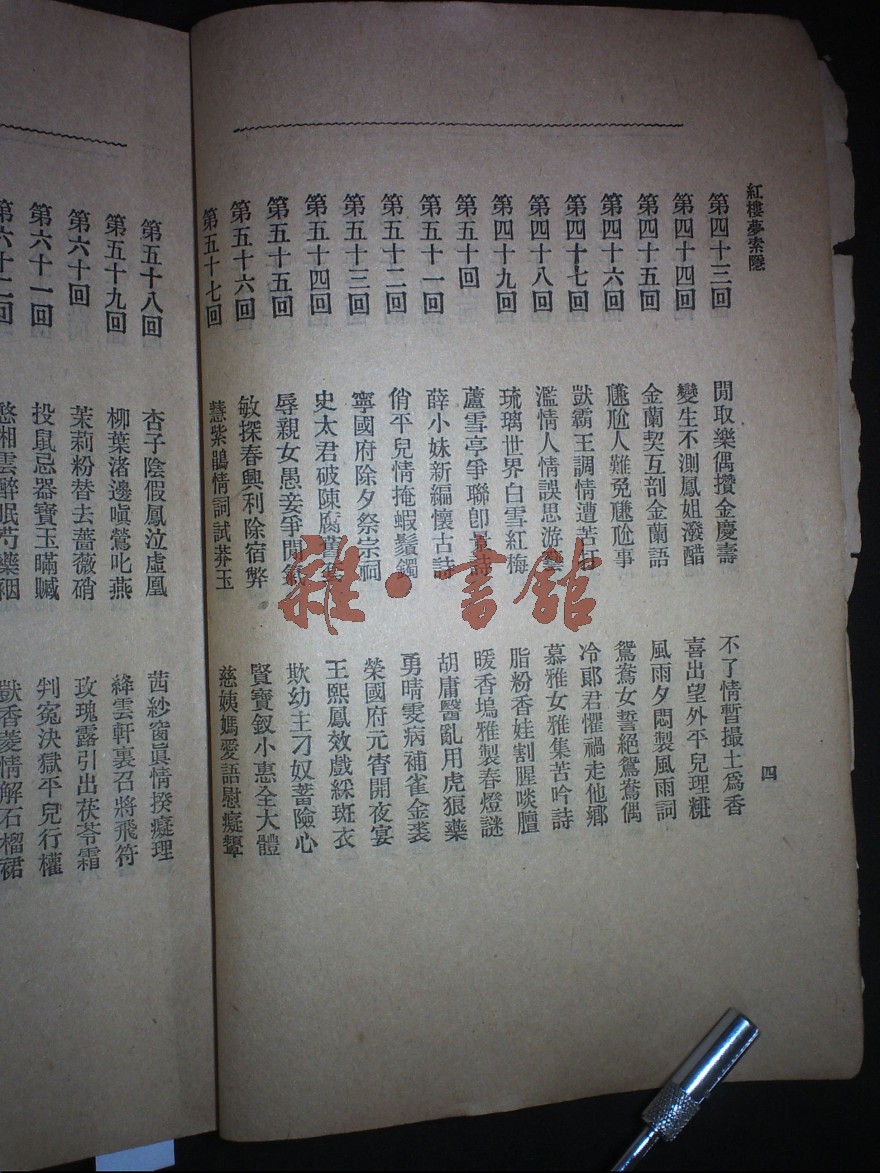 紅樓夢索隱
第四十三回 閒取樂偶攢金慶壽 不了情暫撮土爲香
第四十四回 變生不測鳳姐潑醋 喜出望外平兒理糚
第四十五回 金蘭契互剖金蘭語 風雨夕悶製風雨詞
第四十六回 尷尬人難免尷尬事 鴛鴦女誓絕鴛鴦偶
第四十七回 獃霸王調情遭苦打 冷郞君懼禍走他鄕
第四十八回 濫情人情誤思游藝 慕雅女雅集苦吟詩
第四十九回 琉璃世界白雪紅梅 脂粉香娃割腥啖膻
第五十回 蘆雪亭爭聯卽景詩 暖香塢雅製春燈謎
第五十一回 薛小妹新編懷古詩 胡庸醫亂用虎狼藥
第五十二回 俏平兒情掩蝦鬚鐲 勇晴雯病補雀金裘
第五十三回 寧國府除夕祭宗祠 榮國府元宵開夜宴
第五十四回 史太君破陳腐舊套 王熙鳳效戲綵斑衣
第五十五回 辱親女愚妾爭閒氣 欺幼主刁奴蓄險心
第五十六回 敏探春興利除宿弊 賢寶釵小惠全大體
第五十七回 慧紫鵑情詞試莽玉 慈姨媽愛語慰癡顰
四
第五十八回 杏子陰假鳳泣虛凰 茜紗窗眞情揆癡理
第五十九回 柳葉渚邊嗔鶯叱燕 絳雲軒裏召將飛符
第六十回 茉莉粉替去薔薇硝 玫瑰露引出茯苓霜
第六十一回 投鼠忌器寶玉瞞贓 判寃決獄平兒行權
第六十二回 憨湘雲醉眠芍藥裀 獃香菱情解石榴裙
雜·書館